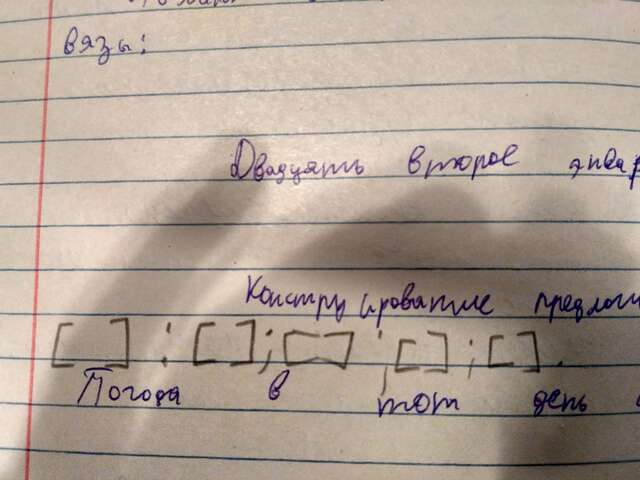 вязы:
Двадцать второе январ
Конструирование предлож
[ ] : [ ] ; [ ] ; [ ] ; [ ] .
Погода в тот день